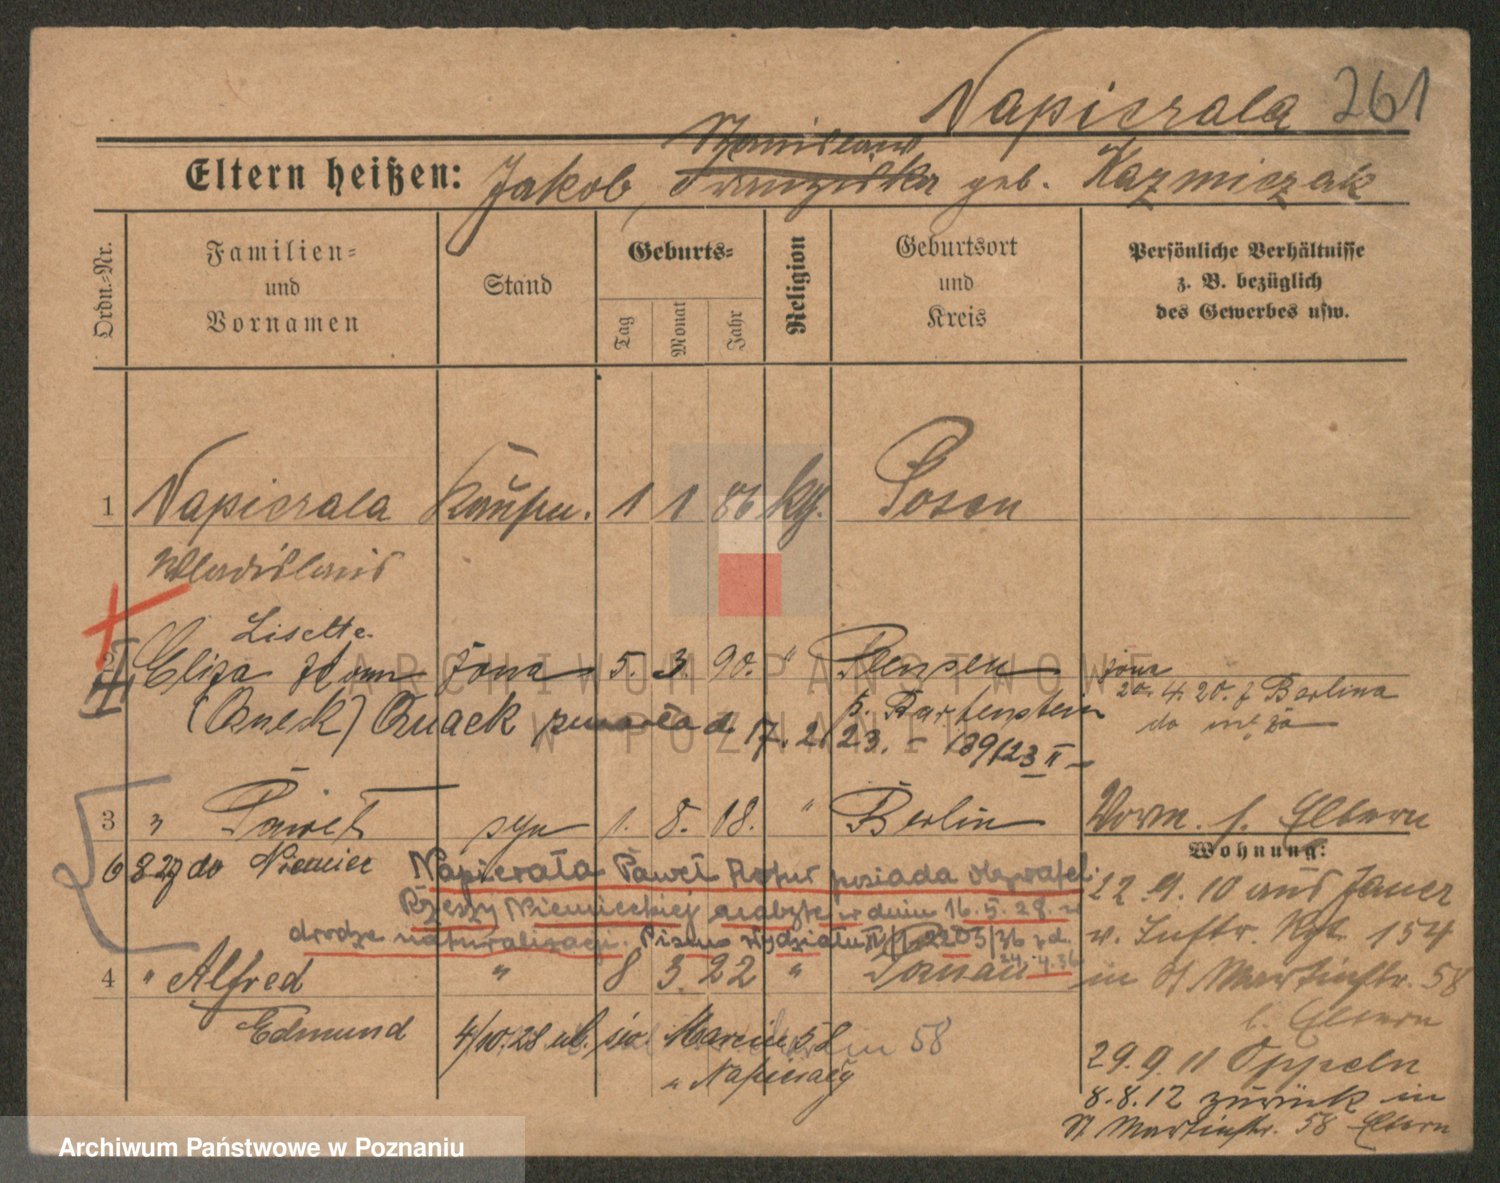 Napierala 261
Eltern heißen: Jakob, Stanislawa Franziska geb. Kazmiczak
Ordn.-Nr.
Familien-
und
Vornamen
Stand
Geburts-
Tag
Monat
Jahr
Religion
Geburtsort
und
Kreis
Persönliche Verhältnisse
z. B. bezüglich
des Gewerbes usw.
1 Napierala Kaufm. 1 1 86 kg. Posen
Wladislaus
Lisette
2 Eliza żona 5. 3. 90. "
II
K. Bartenstein
żona
20. 4. 20. z Berlina
do męża
Quack zmarła d. 17. 2. 23. - 139/23 II
3 " Paweł syn 1. 8. 18. " Berlin
Vorm. s. Eltern
Wohnung:
do Niemiec
Napierała Paweł Artur posiada obywatel.
Rzeszy Niemieckiej nabyte w dniu 16.5.28. w
drodze naturalizacji. Pismo Wydziału II/1 2203/36 z d.
24.4.36
4 " Alfred " 8 3. 22 "
Edmund
4/10.28 ul. św. Marcin 58
58
22.9.10 aus Jauer
v. Inftr. Rgt. 154
in St Martinstr. 58
b. Eltern
29.9.11 Oppeln
8.8.12 zurück in
St Martinstr. 58 Eltern
ARCHIWUM PAŃSTWOWE
W POZNANIU
Archiwum Państwowe w Poznaniu